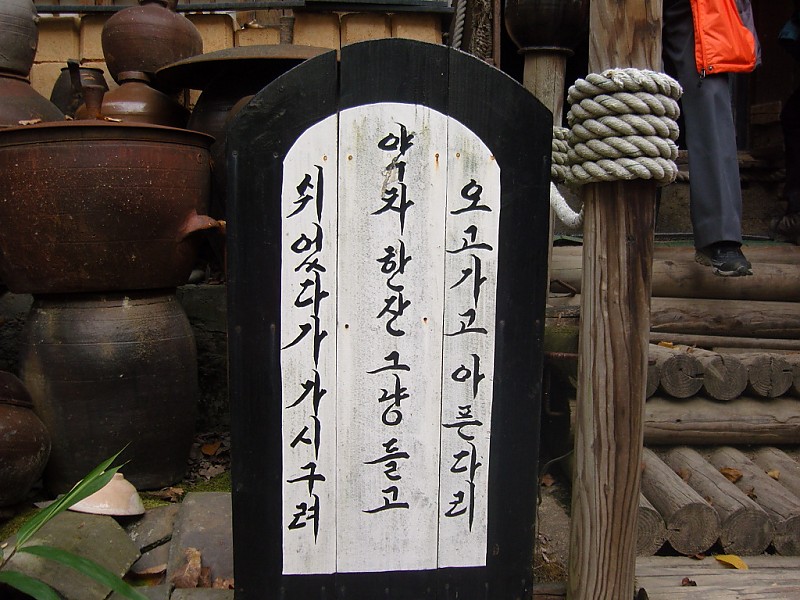 오고가고 아픈다리
약차 한잔 그냥 들고
쉬었다가 가시구려